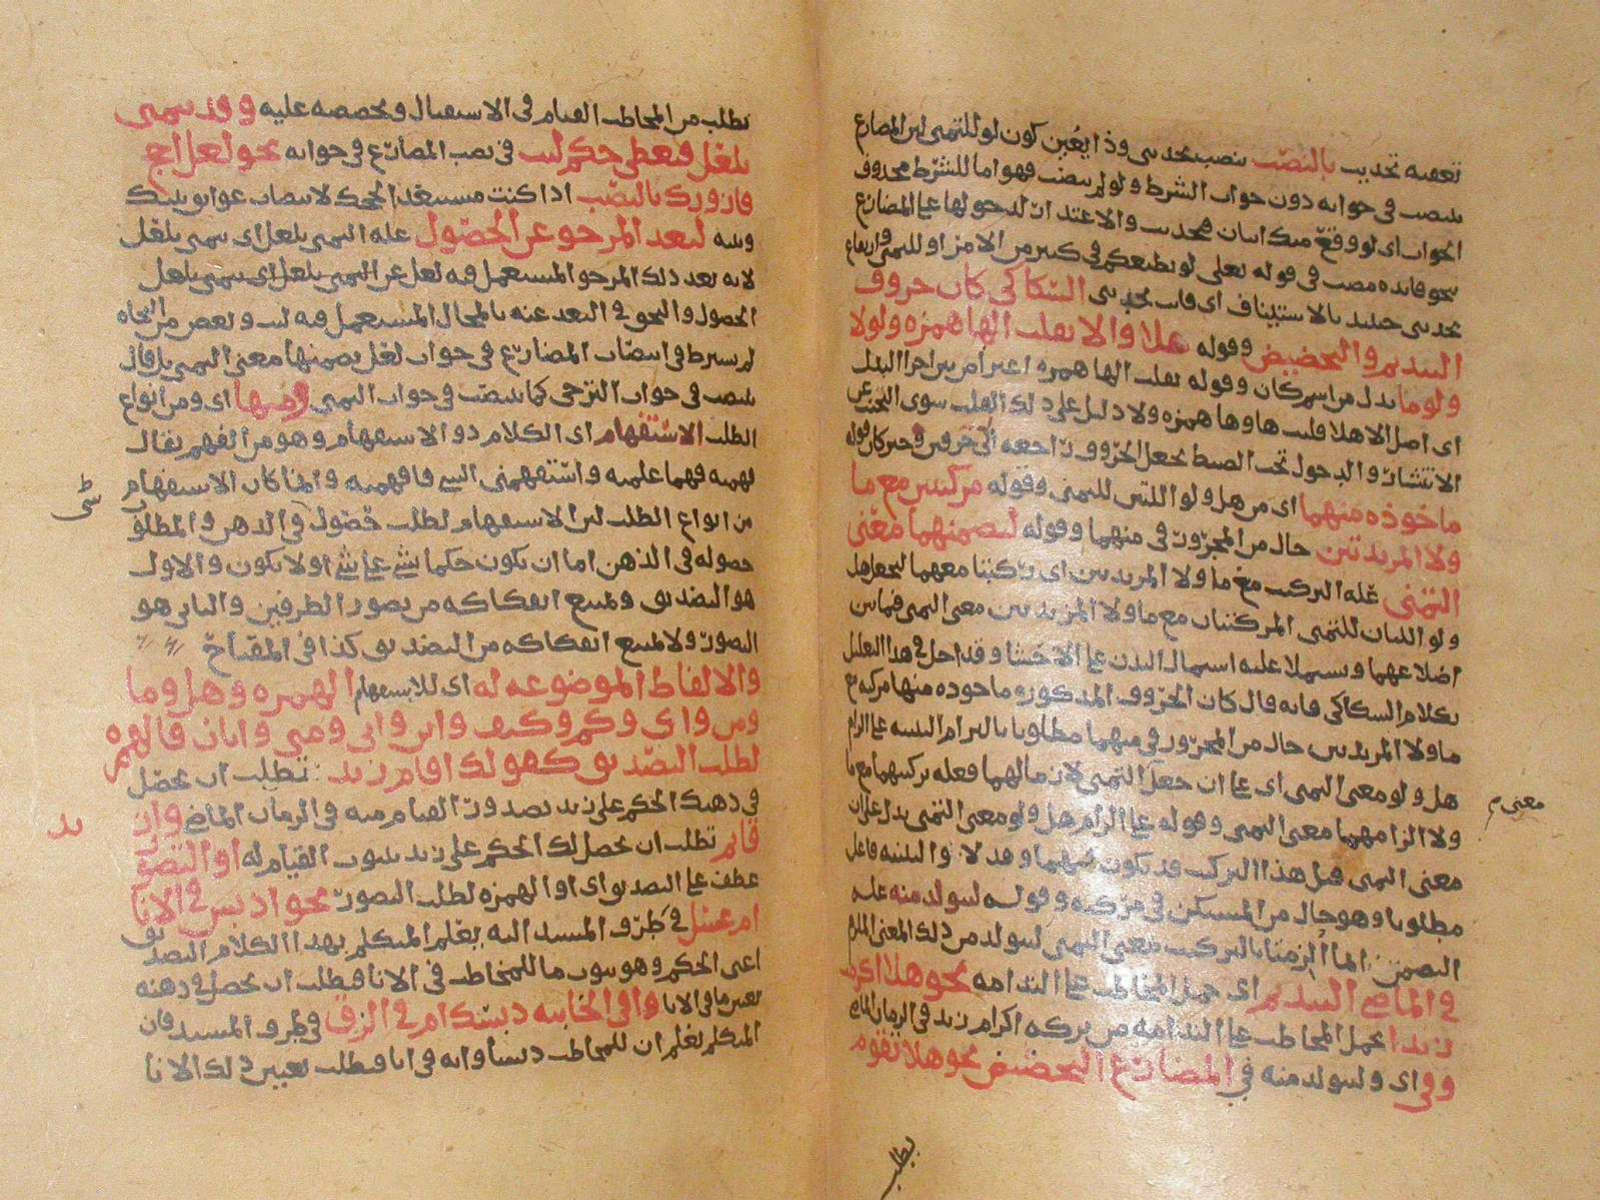 تعقبه تحديث بالنصب بنصب تحدثني وذا يعين كون لو للتمني لان المضارع
ينصب في جوابه دون جواب الشرط ولو لم ينصب فهو اما للشرط محذوف
الجواب اي لو وقع منك اتيان فتحديث والاعتداد لدخولها على المضارع
نحو فائده مصب في قوله تعلى لو يطيعكم في كثير من الامر او للتمني وارتفاع
تحدثني حينئذ بالاستيناف اي فانت تحدثني السكاكي كان حروف
التنديم والتحضيض وقوله هلا والا بقلب الها همزه ولولا
ولوما بدل من اسم كان وقوله بقلب الها همزه
اي اصل الا هلا قلبت هاوها همزه ولا دليل على ذلك القلب سوى التحرز عن
الانتشار والدخول تحت الضبط بجعل الحروف راجعه الى حرفين وخبر كان قوله
ماخوذه منهما اي من هل ولو اللتين للتمني وقوله مركبتين مع ما
ولا المزيدتين حال من المجرور في منهما وقوله لتضمنهما معنى
التمني عله التركيب مع ما ولا المزيدتين اي ركبتا معهما لتجعل هل
ولو اللتان للتمني المركبتان مع ما ولا المزيدتين معنى التمني
بكلام السكاكي فانه قال كان الحروف المذكوره ماخوذه منهما مركبه مع
ما ولا المزيدتين حال من المجرور في منهما مطلوبا بالتزام التنبيه على الزام
هل ولو معنى التمني
ولا الزامهما معنى التمني وقوله على الزام هل ولو معنى التمني يدل على ان
معنى التمني قبل هذا التركيب قد يكون فيهما وقد لا والتنبيه فاعل
مطلوبا وهو حال من المستكن في مركبه وقوله ليتولد منه عله
التضمن انما الزمتا بالتركيب معنى التمني ليتولد من ذلك المعنى الملزم
في الماضي التنديم اي حمل المخاطب على الندامه نحو هلا اكرمت
زيدا بحمل المخاطب على الندامه من تركه اكرام زيد في الزمان الماضي
وفي اي وليتولد منه في المضارع التحضيض نحو هلا تقوم
معنى م
بطلب
تطلب من المخاطب القيام في الاستقبال وتحضضه عليه وقد يتمنى
بلعل فيعطى حكم ليت في نصب المضارع في جوابه نحو لعلي احج
فازورك بالنصب اذا كنت مستبعدا لحجك لانتصاب جوابه بليت
لبعد المرجو عن الحصول عله التمني بلعل اي يتمنى بلعل
لانه بعد ذلك المرجو المستعمل فيه لعل عن التمني بلعل اي يتمنى بلعل
الحصول والنحو في البعد عنه بالمحال المستعمل فيه ليت وبعض من النحاه
لم يشترط في انتصاب المضارع في جواب لعل تضمنها معنى التمني بل قال
ينصب في جواب الترجي كما ينصب في جواب التمني ومنها اي ومن انواع
الطلب الاستفهام اي الكلام ذو الاستفهام وهو من الفهم يقال
فهمه فهما علمه واستفهمني الشي فافهمته وانما كان الاستفهام
من انواع الطلب لان الاستفهام لطلب حصول في الذهن والمطلوب
حصوله في الذهن اما ان يكون حكما بشي على شي او لا يكون والاول
هو التصديق ويمتنع انفكاكه من تصور الطرفين والثاني هو
التصور ولا يمتنع انفكاكه من التصديق كذا في المفتاح
والالفاظ الموضوعه له اي للاستفهام الهمزه وهل وما
ومن واي وكم وكيف واين واني ومتى وايان فالهمزه
لطلب التصديق كقولك اقام زيد تطلب ان يحصل
في ذهنك الحكم على زيد بصدور القيام منه في الزمان الماضي وازيد
قايم تطلب ان يحصل لك الحكم على زيد بثبوت القيام له او التصور
عطف على التصديق اي او الهمزه لطلب التصور نحو ادبس في الانا
ام عسل في طرف المسند اليه يعلم المتكلم بهذا الكلام التصديق
اعني الحكم وهو ثبوت ما للمخاطب في الانا فيطلب ان يحصل في ذهنه
تعين ما في الانا وافي الخابيه دبسك ام في الزق في طرف المسند فان
المتكلم يعلم ان للمخاطب دبسا وانه في انا فيطلب تعيين ذلك الانا
شي
يد